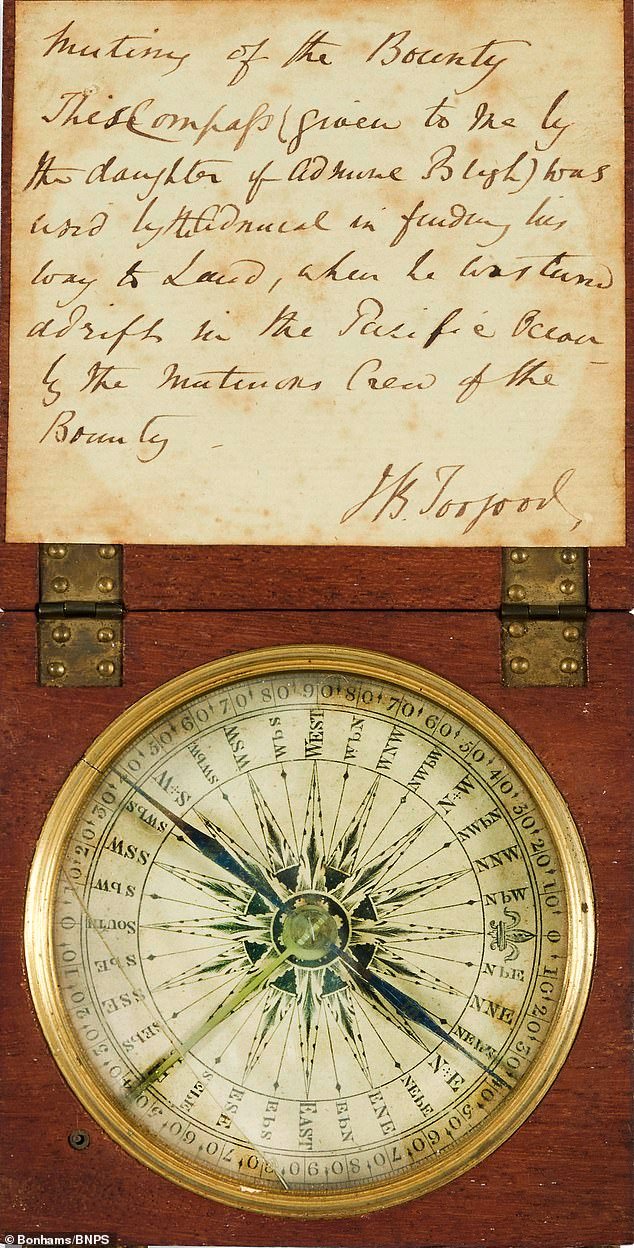 Mutiny of the Bounty
This Compass (given to me by
the daughter of Admiral Bligh) was
used by the Admiral in finding his
way to Land, when he was turned
adrift in the Pacific Ocean
by the mutinous Crew of the
Bounty
J B. Toogood,
WEST
WbN
WNW
NWbW
N+W
NWbN
NNW
NbW
NbE
NNE
NEbN
N+E
NEbE
ENE
EbN
EAST
EbS
ESE
SEbE
SEbS
SSE
SbE
SOUTH
SbW
SSW
SWbS
S+W
SWbW
WSW
WbS
0 10 20 30 40 50 60 70 80 90 80 70 60 50 40 30 20 10 0 10 20 30 50 60 70 80 90
© Bonhams/BNPS